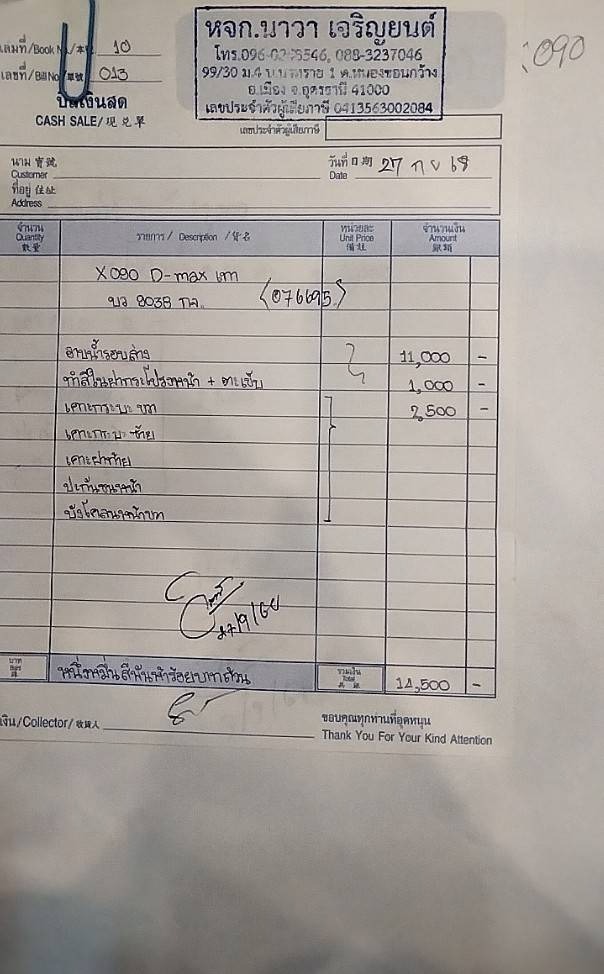 หจก.นาวา เจริญยนต์
:090
เล่มที่/Book No./本號 10
โทร.096- 5546, 088-3237046
เลขที่/Bill No./單號 013
99/30 ม.4 1 ต.หนองขอนกว้าง
อ.เมือง จ.อุดรธานี 41000
บิลเงินสด
เลขประจำตัวผู้เสียภาษี 0413563002084
CASH SALE/現兑單
เลขประจำตัวผู้เสียภาษี
นาม 寳號
Customer
วันที่ 日期 27 ก ย 68
Date
ที่อยู่ 住址
Address
จำนวน รายการ / Description / 貨名 หน่วยละ จำนวนเงิน
Quantity Unit Price Amount
數量 價址 銀額
X090 D-max เทา
บว 8038 (076695)
อาบน้ำรอบล่าง 11,000 -
ทำสีในฝากระโปรงหน้า + 1,000 -
เคาะกระบะ ขวา 2,500 -
เคาะกระบะ ซ้าย
เคาะฝาท้าย
ปะกันชนหน้า
บังโคลนหน้าขวา
27/9/68
บาท
Baht หนึ่งหมื่นสี่พันห้าร้อยบาทถ้วน รวมเงิน
Total 14,500 -
เงิน/Collector/收貨人
ขอบคุณทุกท่านที่อุดหนุน
Thank You For Your Kind Attention